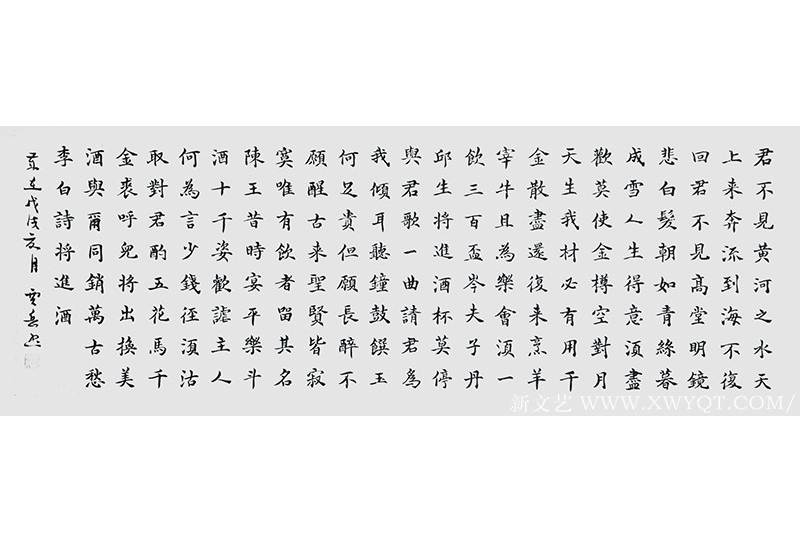 君不見黃河之水天
上来奔流到海不復
回君不見高堂明鏡
悲白髮朝如青絲暮
成雪人生得意須盡
歡莫使金樽空對月
天生我材必有用千
金散盡還復来烹羊
宰牛且為樂會須一
飲三百盃岑夫子丹
邱生將進酒杯莫停
與君歌一曲請君為
我傾耳聽鐘鼓饌玉
何足貴但願長醉不
願醒古来聖賢皆寂
寞唯有飲者留其名
陳王昔時宴平樂斗
酒十千姿歡謔主人
何為言少錢徑須沽
取對君酌五花馬千
金裘呼兒將出換美
酒與爾同銷萬古愁
李白詩將進酒
歲在戊戌亥月
新文艺 WWW.XWYQT.COM/